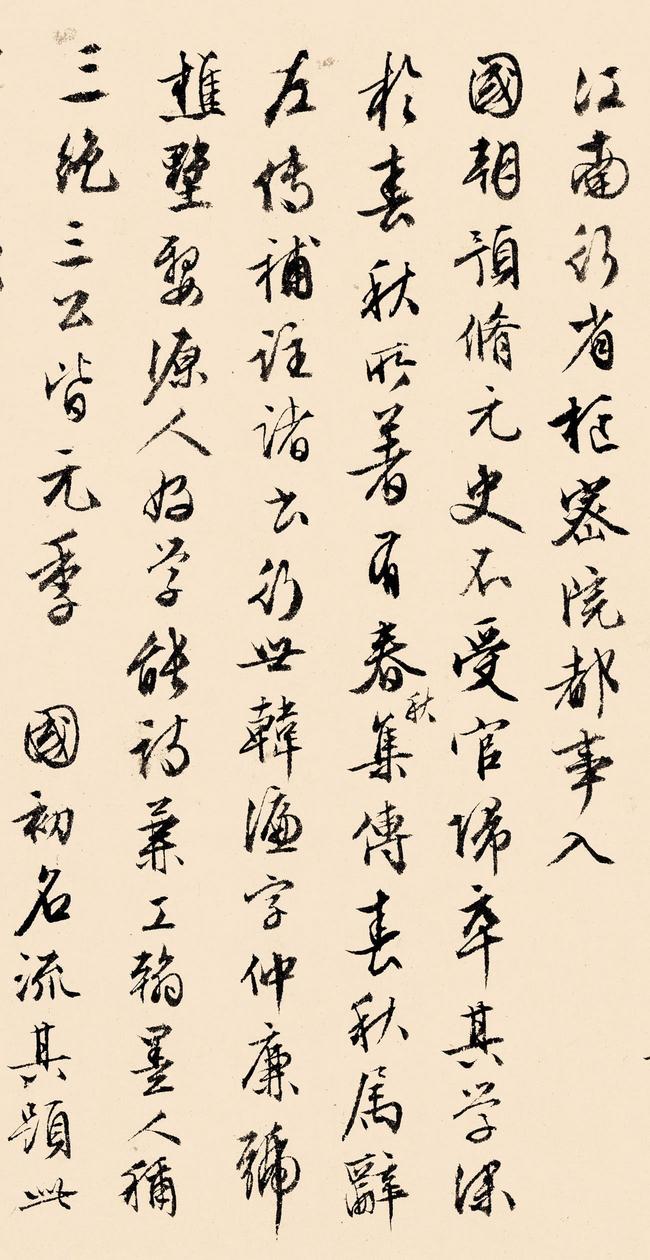 江南行省樞密院都事入
國朝預脩元史不受官歸卒其學深
於春秋所著有春秋集傳春秋属辭
左傳補註諸書行世韓濂字仲廉號
樵墅婺源人好學能詩兼工翰墨人稱
三絶三公皆元季 國初名流其題此